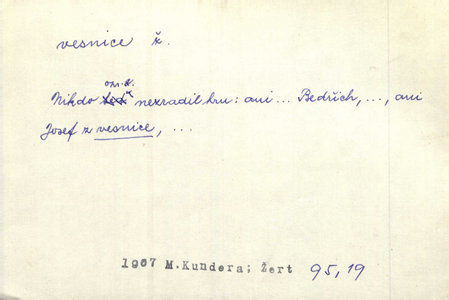 vesnice ž.
Nikdo nezradil hru: ani ... Bedřich, ..., ani
Josef z vesnice, ...
1967 M.Kundera; Žert 95,19